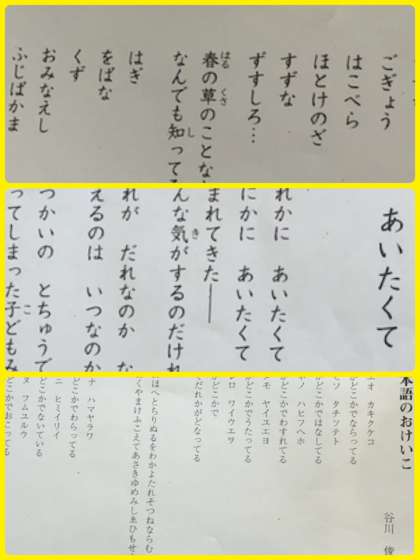 ごぎょう
はこべら
ほとけのざ
すずな
ずすしろ…
春の草のことな
はる
くさ
なんでも知って
し
はぎ
をばな
くず
おみなえし
ふじばかま
あいたくて
れかに あいたくて
にかに あいたくて
まれてきた――
んな気がするのだけれ
き
れが だれなのか
えるのは いつなのか
つかいの とちゅうで
ってしまった子ども
こ
本語のおけいこ
谷川 俊
エオ カキクケコ
どこかでならってる
ソ タチツテト
どこかではなしてる
ノ ハヒフヘホ
どこかでわすれてる
モ ヤイユエヨ
どこかでうたってる
ロ ワイウエヲ
どこかで
だれかがどなってる
ほへとちりぬるをわかよたれそつねならむ
やまけふこえてあさきゆめみしゑひもせ
ナ ハマヤラワ
どこかでわらってる
ニ ヒミイリイ
どこかでないている
ヌ フムユル
どこかでおこってる